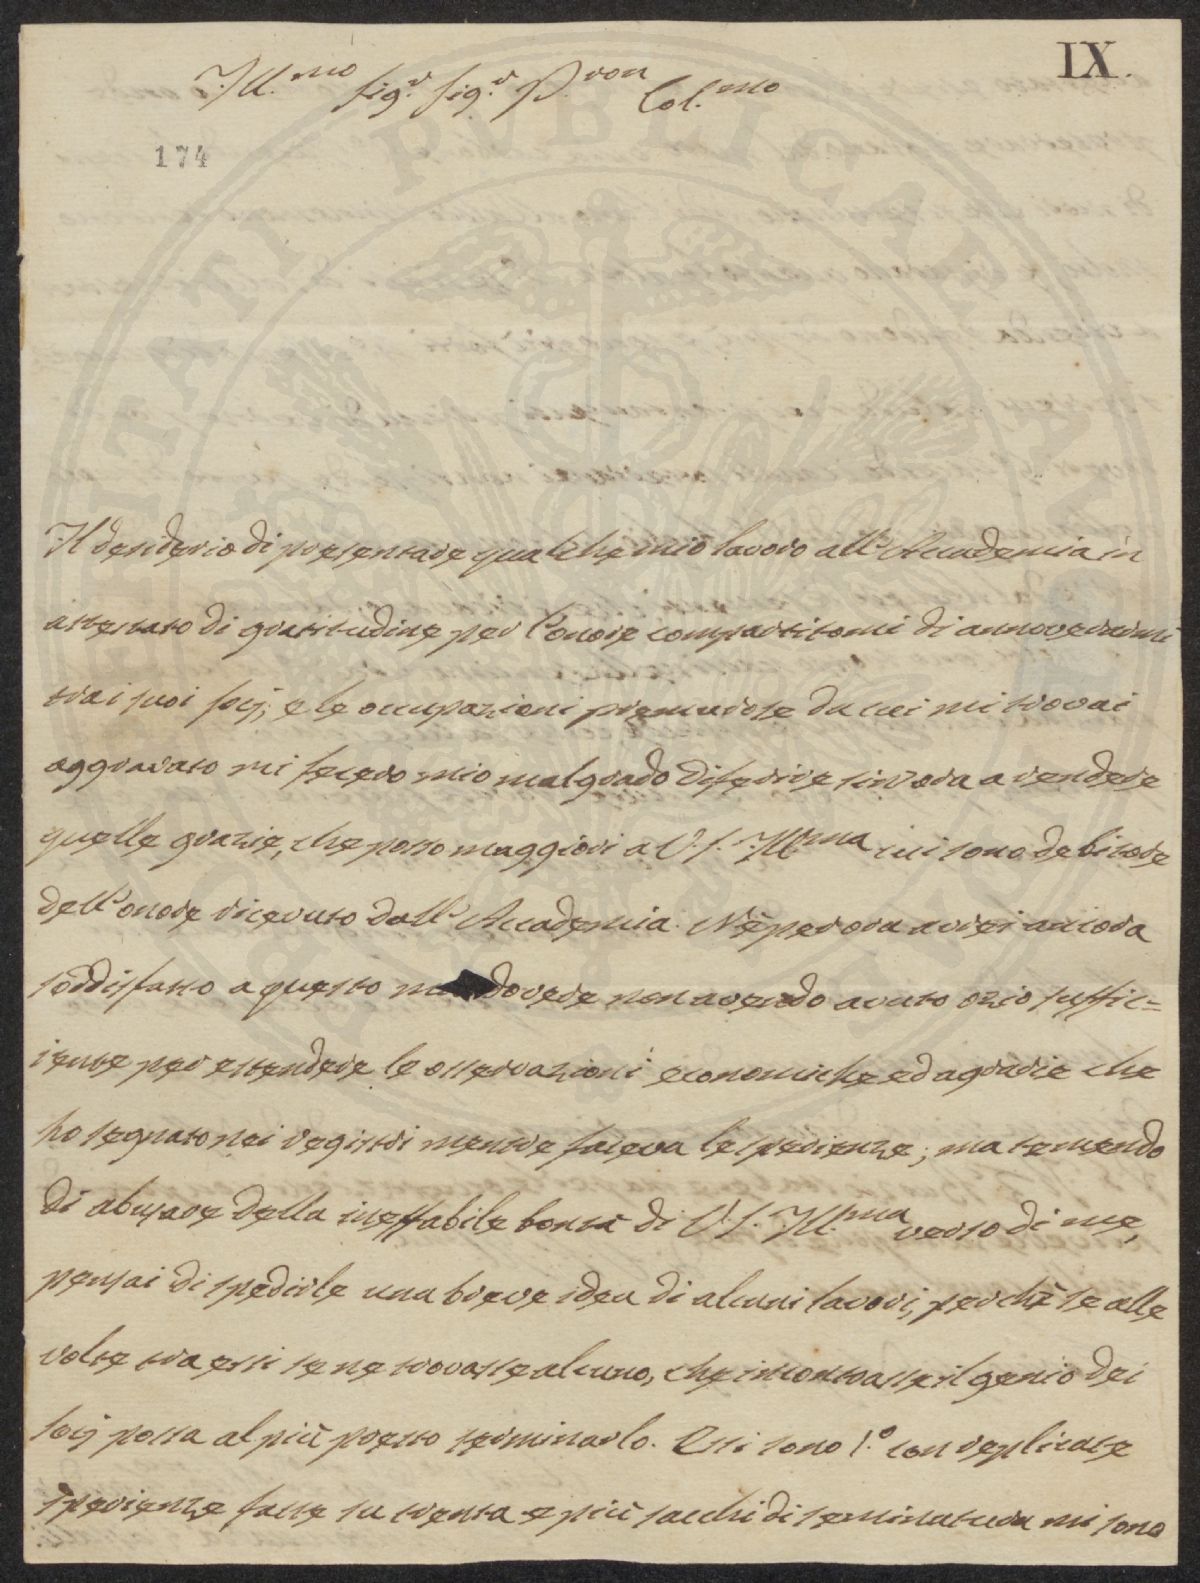 IX.
Ill.mo Sig.r Sig.r P.ron Col.mo
174
Il desiderio di presentare qualche mio lavoro all'Accademia in
attestato di gratitudine per l'onore compartitomi di annoverarmi
trai suoi socj, e le occupazioni premurose da cui mi trovai
aggravato mi fecero mio malgrado diferire sin'ora a rendere
quelle grazie, che posso maggiori a V. S. Ill.ma cui sono debitore
dell'onore ricevuto dall'Accademia. Nè per ora avrei ancora
soddisfatto a questo dovere non avendo avuto ozio suffic=
iente per estendere le osservazioni economiche ed agrarie che
ho segnato nei registri mentre faceva le sperienze; ma temendo
di abusare della ineffabile bontà di V. S. Ill.ma verso di me,
pensai di spedirle una breve idea di alcuni lavori, perchè se alle
volte tra essi se ne trovasse alcuno, che incontrasse il genio dei
socj possa al più presto terminarlo. Essi sono 1.o con replicate
sperienze fatte su trenta e più sacchi di seminatura mi sono
PUBLICAE